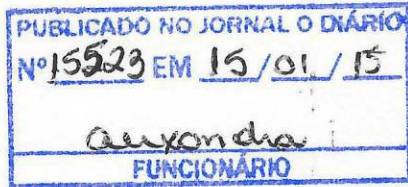 PUBLICADO NO JORNAL O DIÁRIO
Nº 15523 EM 15/01/15
FUNCIONÁRIO